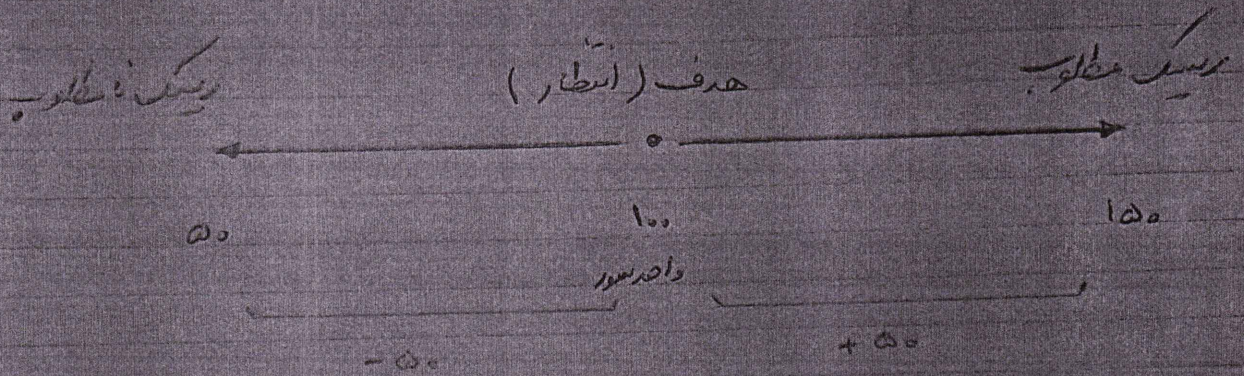 ریسک مطلوب هدف (انتظار) ریسک نامطلوب
۱۵۰ ۱۰۰ ۵۰
واحد سود
+ ۵۰ - ۵۰